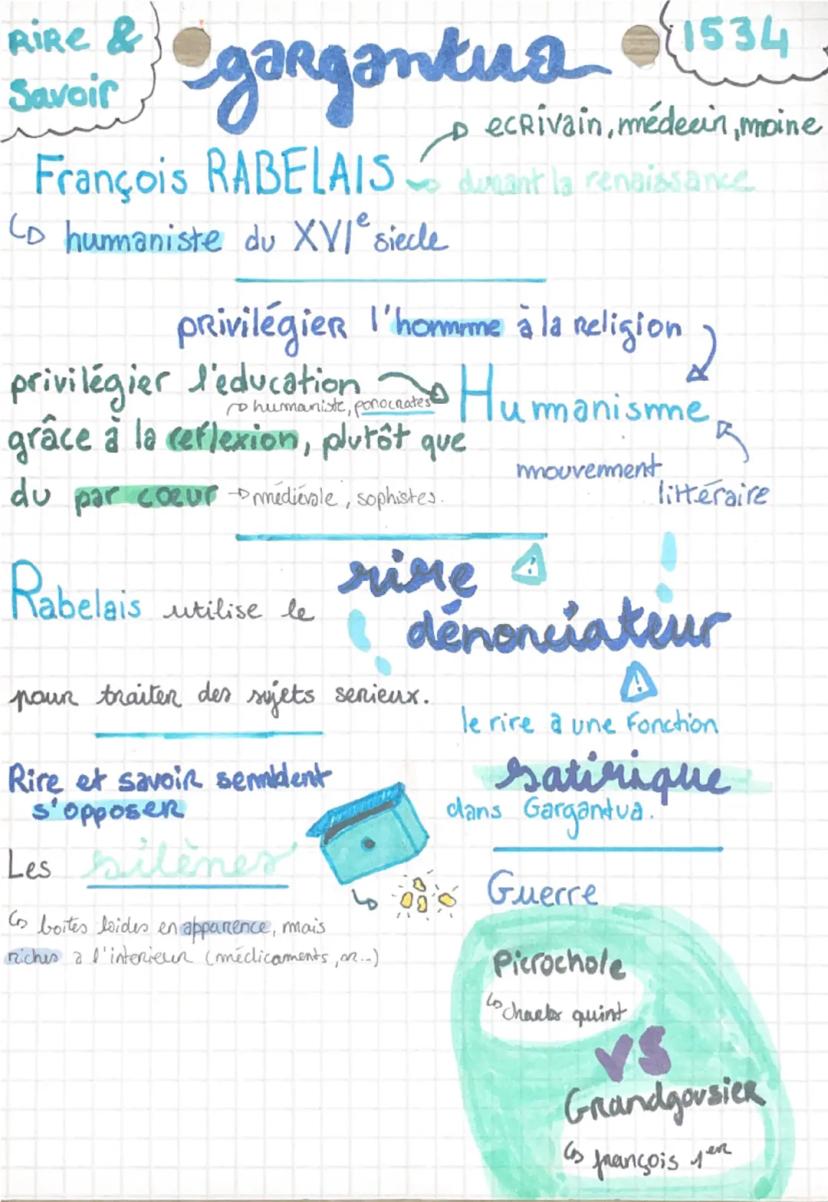 RIRE &
Savoir
gargantua
1534
ecrivain, médecin, moine
François RABELAIS
durant la renaissance
humaniste du XVIe siecle
privilégier l'homme à la religion
privilégier l'éducation
humaniste, ponocrates
Humanisme
grâce à la reflexion, plutôt que
mouvement
littéraire
du par cœur → médiévale, sophistes.
rire
dénonciateur
Rabelais utilise le
pour traiter des sujets serieux.
le rire a une fonction
satirique
dans Gargantua.
Rire et savoir semblent
s'opposer
Les silènes
boites laides en apparence, mais
riches a l'interieur (médicaments, or...)
Guerre
Picrochole
charles quint
VS
Grandgousier
françois 1er